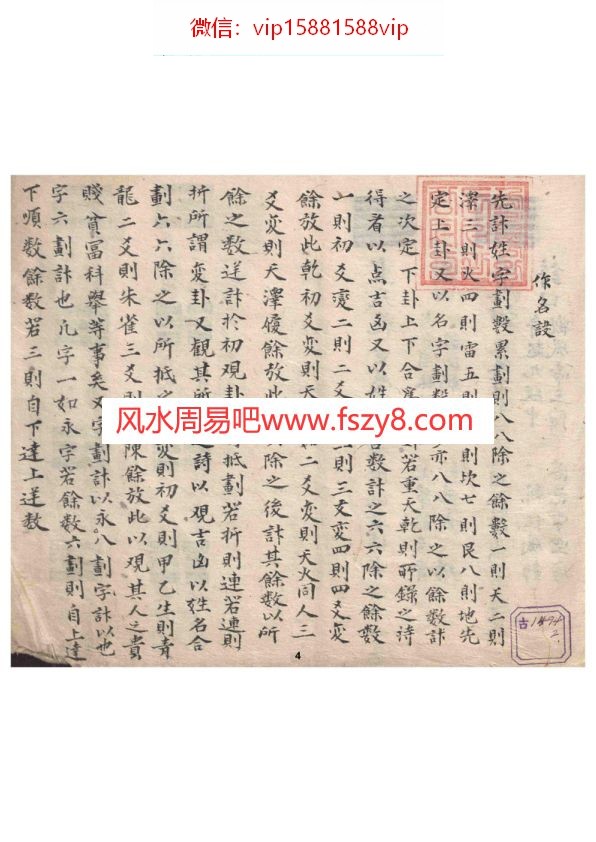 微信：vip15881588vip
作名設
先計姓字劃數累劃則八八除之餘數一則天二則
澤三則火四則雷五則 則坎七則艮八則地先
定上卦又以名字劃數 亦八八除之以餘數計
之次定下卦上下合爲 若重天乾則所錄之詩
得看以点吉凶又以姓 數計之六六除之餘數
一則初爻變二則二爻 三則三爻変四則四爻変
餘放此乾初爻変則天 二爻変則天火同人三
爻変則天澤履餘放此 除之後計其餘數以所
餘之數逆計於初觀卦 抵劃若折則連若連則
折所謂变卦又觀其所 詩以观吉凶以姓名合
劃六六除之以所抵之 変則初爻則甲乙生則青
龍二爻則朱雀三爻則 陳餘放此以观其人之貴
賤貧富科舉等事矣又字劃計以永八劃字計以也
字六劃計也凡字一如永字若餘數六劃則自上達
下順數餘數若三則自下達上逆数
风水周易吧www.fszy8.com
古1494
2.
4